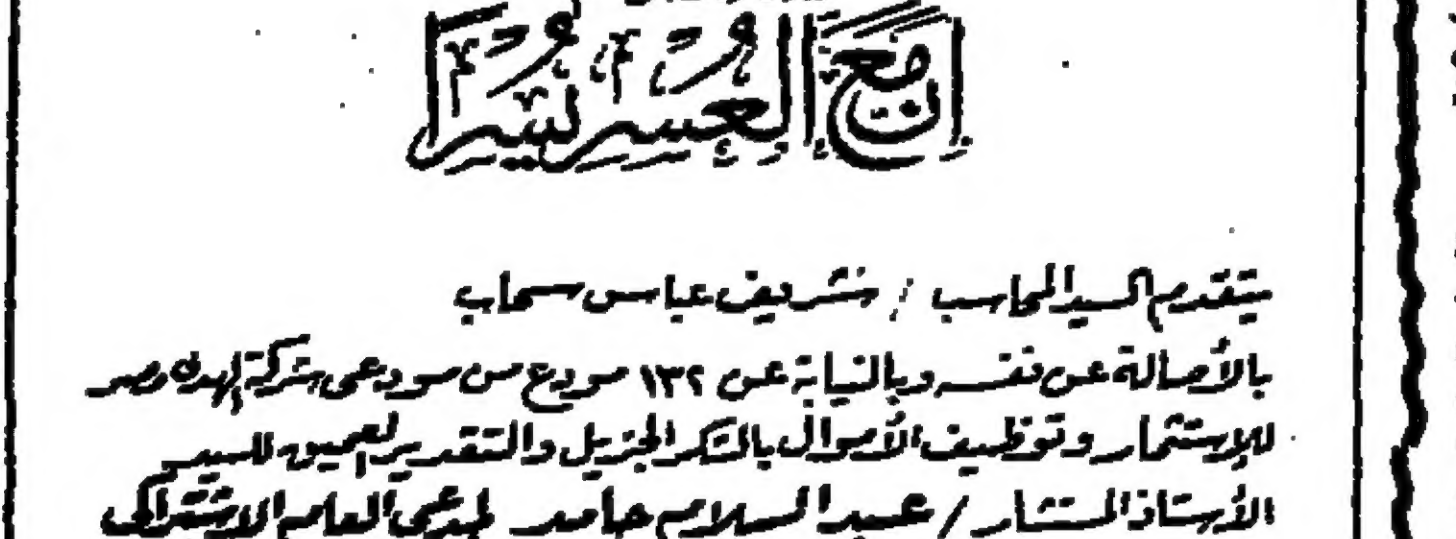 إن مع العسر يسرا
يتقدم السيد المحاسب / شريف عباس سحاب
بالأصالة عن نفسه وبالنيابة عن ١٣٢ مودع من مودعى شركة الهدى مصر
للإستثمار وتوظيف الأموال بالشكر الجزيل والتقدير العميق للسيد
الأستاذ المستشار / عبد السلام حامد المدعى العام الاشتراكى